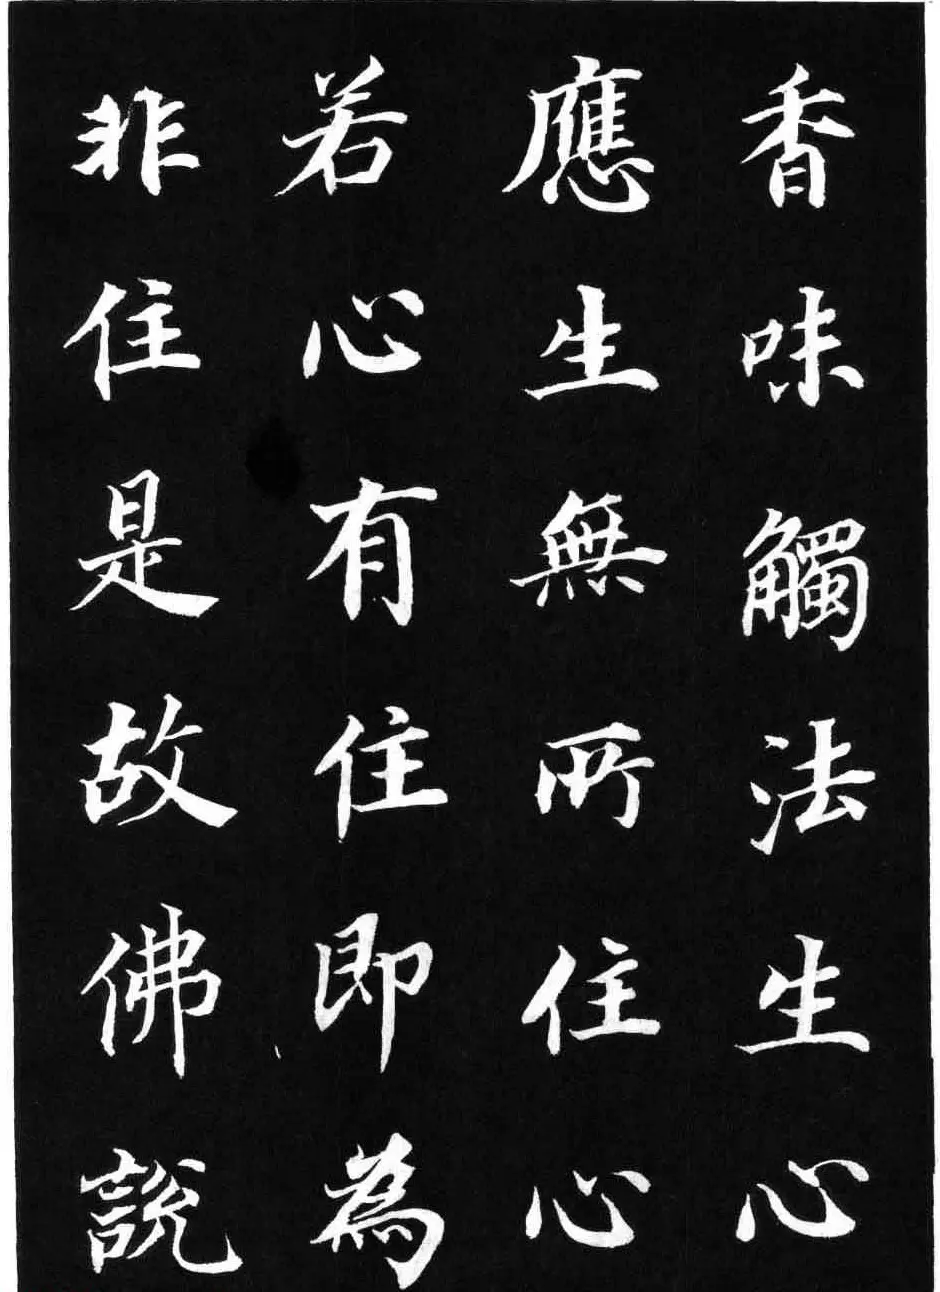 香味觸法生心
應生無所住心
若心有住即為
非住是故佛說